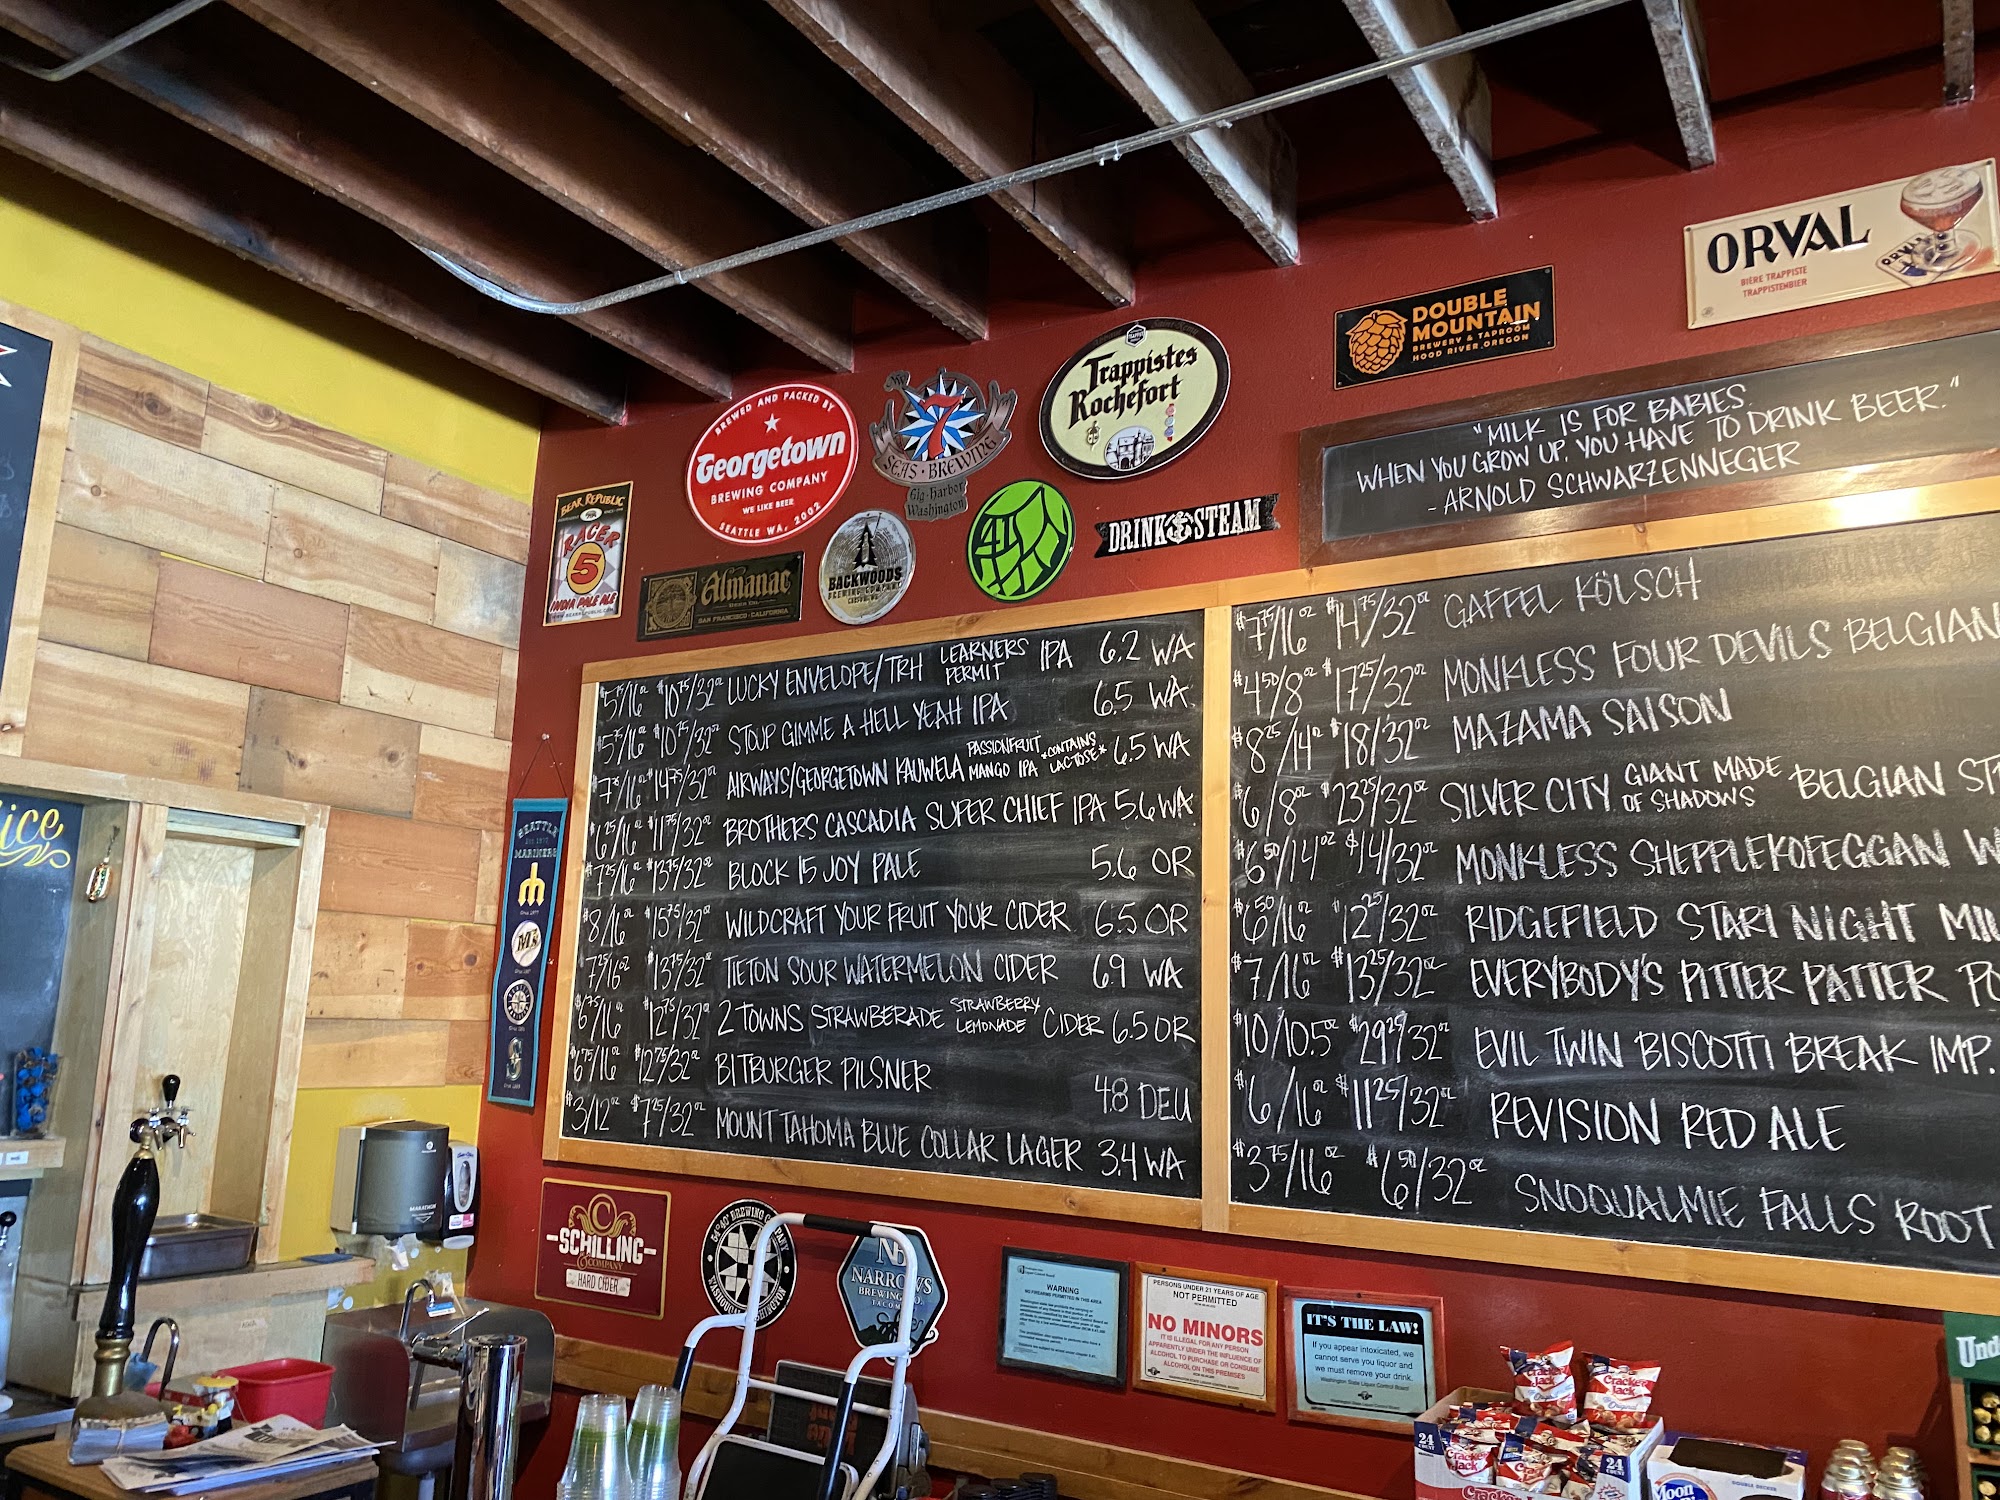 ORVAL
BIÈRE TRAPPISTE
TRAPPISTENBIER
DOUBLE
MOUNTAIN
BREWERY & TAPROOM
HOOD RIVER, OREGON
Trappistes
Rochefort
BREWED AND PACKED BY
Georgetown
BREWING COMPANY
WE LIKE BEER
SEATTLE WA, 2002
7
SEAS · BREWING
Gig Harbor
Washington
BEAR REPUBLIC
RACER
5
INDIA PALE ALE
Almanac
SAN FRANCISCO · CALIFORNIA
BACKWOODS
BREWING COMPANY
DRINK STEAM
"MILK IS FOR BABIES.
WHEN YOU GROW UP, YOU HAVE TO DRINK BEER."
- ARNOLD SCHWARZENNEGER
$5.75/16oz $10.75/32oz LUCKY ENVELOPE/TRH LEARNERS PERMIT IPA 6.2 WA
$5.75/16oz $10.75/32oz STOUP GIMME A HELL YEAH IPA 6.5 WA
$7.75/16oz $14.75/32oz AIRWAYS/GEORGETOWN KAUWELA PASSIONFRUIT MANGO IPA *CONTAINS LACTOSE* 6.5 WA
$6.25/16oz $11.75/32oz BROTHERS CASCADIA SUPER CHIEF IPA 5.6 WA
$7.25/16oz $13.75/32oz BLOCK 15 JOY PALE 5.6 OR
$8/16oz $15.75/32oz WILDCRAFT YOUR FRUIT YOUR CIDER 6.5 OR
$7.25/16oz $13.75/32oz TIETON SOUR WATERMELON CIDER 6.9 WA
$6.75/16oz $12.75/32oz 2 TOWNS STRAWBERADE STRAWBERRY LEMONADE CIDER 6.5 OR
$6.75/16oz $12.75/32oz BITBURGER PILSNER 4.8 DEU
$3/12oz $7.25/32oz MOUNT TAHOMA BLUE COLLAR LAGER 3.4 WA
$7.75/16oz $14.75/32oz GAFFEL KÖLSCH
$4.50/8oz $17.25/32oz MONKLESS FOUR DEVILS BELGIAN
$8.25/14oz $18/32oz MAZAMA SAISON
$6/8oz $23.25/32oz SILVER CITY GIANT MADE OF SHADOWS BELGIAN ST
$6.50/14oz $14/32oz MONKLESS SHEPPLEKOFEGGAN W
$6.50/16oz $12.25/32oz RIDGEFIELD STARI NIGHT MIL
$7/16oz $13.25/32oz EVERYBODY'S PITTER PATTER PO
$10/10.5oz $29.25/32oz EVIL TWIN BISCOTTI BREAK IMP.
$6/16oz $11.25/32oz REVISION RED ALE
$3.75/16oz $6.50/32oz SNOQUALMIE FALLS ROOT
SEATTLE
MARINERS
M's
S
ice
MARATHON
SCHILLING
& COMPANY
HARD CIDER
54°40' BREWING COMPANY
WASHOUGAL WASHINGTON
NB
NARROWS
BREWING CO.
TACOMA
WARNING
NO FIREARMS PERMITTED IN THIS AREA
PERSONS UNDER 21 YEARS OF AGE
NOT PERMITTED
NO MINORS
IT IS ILLEGAL FOR ANY PERSON
APPARENTLY UNDER THE INFLUENCE OF
ALCOHOL TO PURCHASE OR CONSUME
ALCOHOL ON THIS PREMISES
IT'S THE LAW!
If you appear intoxicated, we
cannot serve you liquor and
we must remove your drink.
Washington State Liquor Control Board
Cracker Jack
Original
Cracker Jack
24
COUNT
24
COUNT
Moon
Und